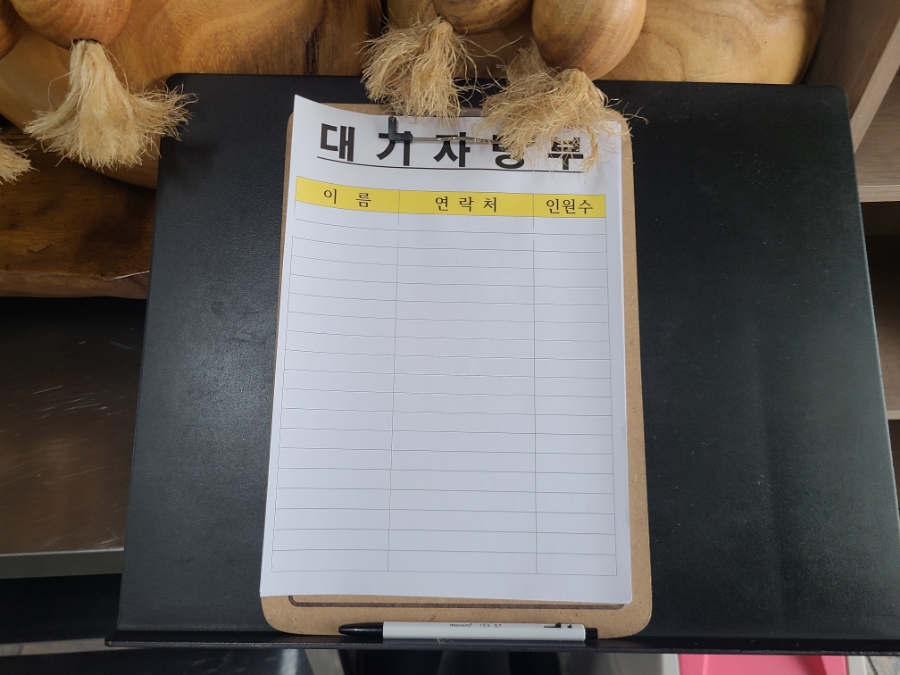 대기자명부
이름 연락처 인원수